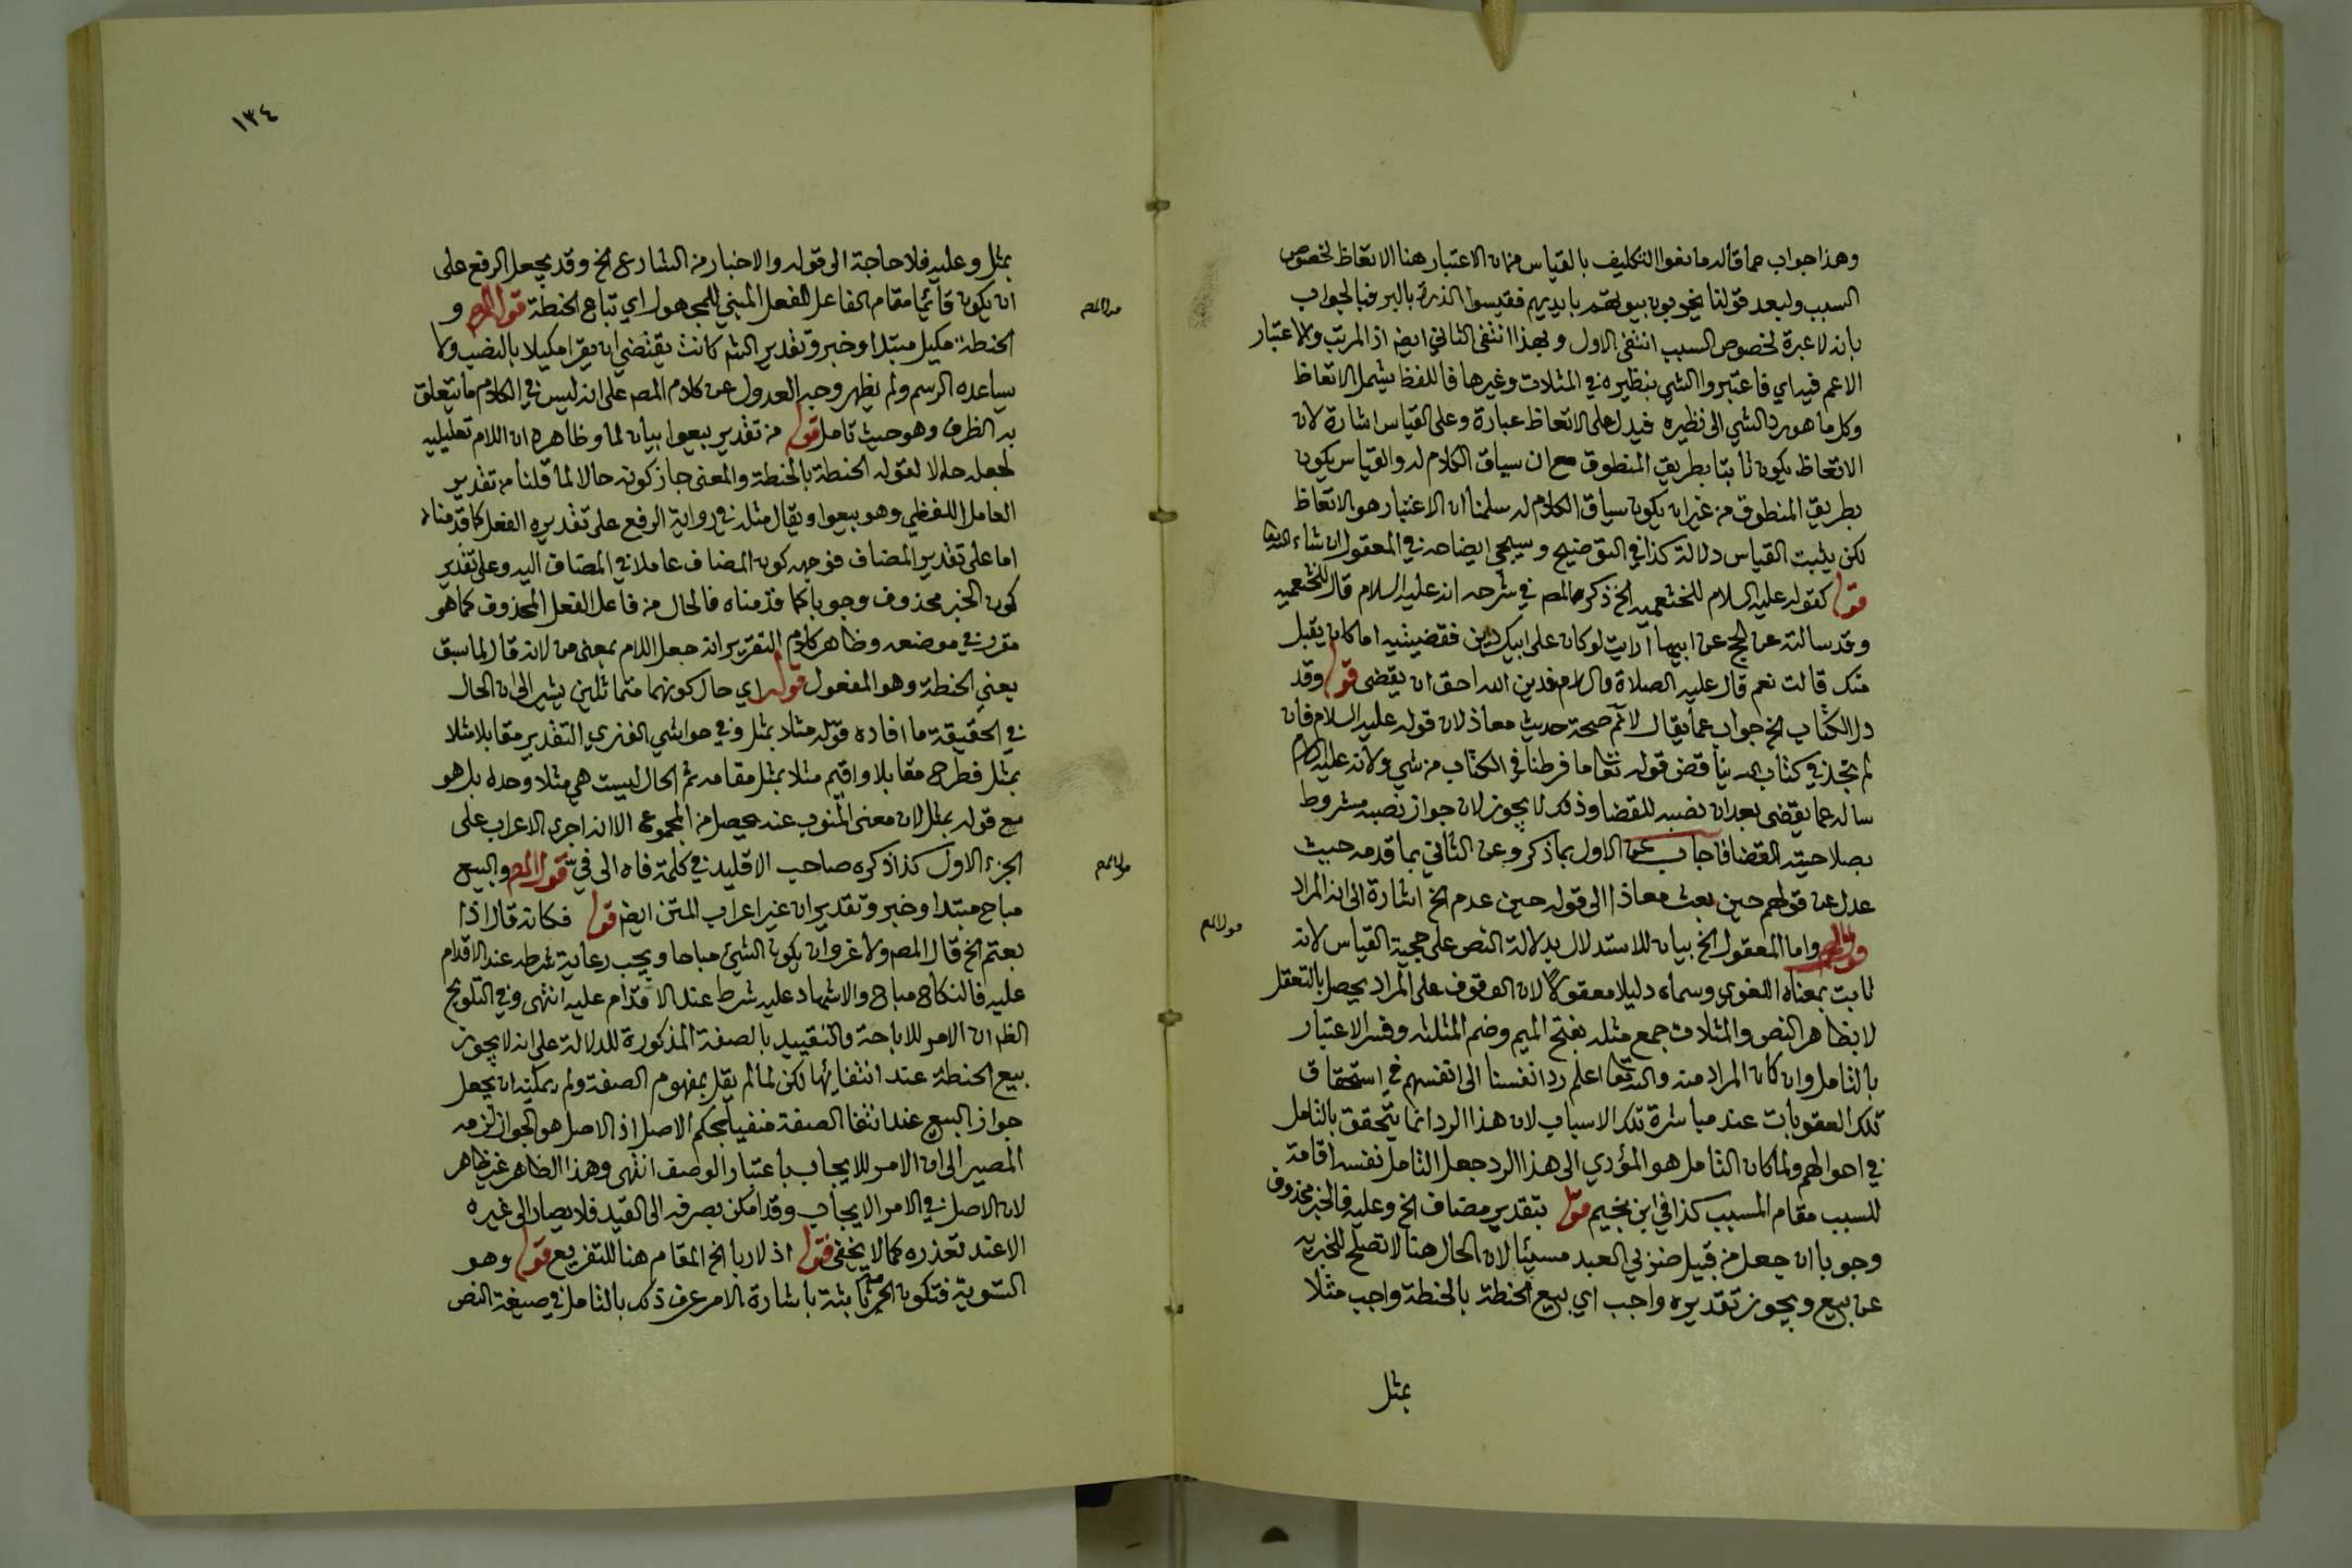 وهذا جواب عما قاله مانعوا التكليف بالقياس من ان الاعتبار هنا الاتعاظ لخصوص
السبب ولبعد قولنا يخربون بيوتهم بايديهم فقيسوا الذرة بالبر فبالجواب
بانه لا عبرة لخصوص السبب انتفى الاول وبهذا انتفى الثاني ايضا اذ المرتب والاعتبار
الاعم فيه اي فاعتبروا الشي بنظيره في المثلات وغيرها فاللفظ يشمل الاتعاظ
وكل ما هو رد الشي الى نظيره فيدل على الاتعاظ عبارة وعلى القياس اشارة لان
الاتعاظ يكون ثابتا بطريق المنطوق مع ان سياق الكلام له والقياس يكون
بطريق المنطوق من غير ان يكون سياق الكلام له سلمنا ان الاعتبار هو الاتعاظ
لكن يثبت القياس دلالة كذا في التوضيح وسيجي ايضاحه في المعقول ان شاء الله تعا
قوله كقوله عليه السلام للخثعمية الخ ذكر المصم في شرحه انه عليه السلام قال للخثعمية
وقد سالته عن الحج عن ابيها ارايت لو كان على ابيك دين فقضيتيه اما كان يقبل
منك قالت نعم قال عليه الصلاة والسلام فدين الله احق ان يقضى قوله وقد
دل الكتاب الخ جواب عما يقال لا نم صحة حديث معاذ لان قوله عليه السلام فان
لم تجد في كتاب الله يناقض قوله تعا ما فرطنا في الكتاب من شي ولانه عليه السلام
ساله عما يقضى بعد ان نصبه للقضا وذلك لا يجوز لان جواز نصبه مشروط
بصلاحيته القضا فاجاب عن الاول بما ذكر وعن الثاني بما قدمه حيث
عدل عن قولهم حين بعث معاذا الى قوله حين عدم الخ اشارة الى انه المراد
قول المصم واما المعقول الخ بيان للاستدلال بدلالة النص على حجية القياس لانه
ثابت بمعناه اللغوي وسماه دليلا معقولا لان الوقوف على المراد يحصل بالتعقل
لا بظاهر النص والمثلات جمع مثلة بفتح الميم وضم المثلثة وفسر الاعتبار
بالتامل وان كان المراد منه والله تعا اعلم رد انفسنا الى انفسهم في استحقاق
تلك العقوبات عند مباشرة تلك الاسباب لان هذا الرد انما يتحقق بالتامل
في احوالهم ولما كان التامل هو المؤدي الى هذا الرد جعل التامل نفسه اقامة
للسبب مقام المسبب كذا في ابن نجيم قوله بتقدير مضاف الخ وعليه فالخبر محذوف
وجوبا ان جعل من قبيل ضربي العبد مسيئا لان الحال هنا لا تصلح للخبرية
عن بيع ويجوز تقديره واجب اي بيع الحنطة بالحنطة واجب مثلا
بمثل
قول المصم
١٣٤
بمثل وعليه فلا حاجة الى قوله والاخبار من الشارع الخ وقد يجعل الرفع على
ان يكون قائما مقام الفاعل للفعل المبني للمجهول اي تباع الحنطة قول المصم و
الحنطة مكيل مبتدا وخبر وتقدير الشم كانت يقتضي ان يقرا مكيلا بالنصب ولا
يساعده الرسم ولم يظهر وجه العدول عن كلام المصم على انه ليس في الكلام ما يتعلق
به الظرف وهو حيث تامل قوله من تقدير بيعوا بيان لما وظاهره ان اللام تعليلية
لجعله حالا لقوله الحنطة بالحنطة والمعنى جاز كونه حالا لما قلنا من تقدير
العامل اللفظي وهو بيعوا ويقال مثله في رواية الرفع على تقديره الفعل كما قدمناه
اما على تقدير المضاف فوجهه كون المضاف عاملا في المضاف اليه وعلى تقدير
كون الخبر محذوف وجوبا كما قدمناه فالحال من فاعل الفعل المحذوف كما هو
مقرر في موضعه وظاهر كلام التقرير انه جعل اللام بمعنى من لانه قال لما سبق
يعني الحنطة وهو المفعول قوله اي حال كونهما متماثلين يشير الى ان الحال
في الحقيقة ما افاده قوله مثلا بمثل وفي حواشي الفنري التقدير مقابلا مثلا
بمثل فطرح مقابلا واقيم مثلا بمثل مقامه ثم الحال ليست هي مثلا وحده بل هو
مع قوله بمثل لان معنى المنوب عنه يحصل من المجموع الا انه اجرى الاعراب على
الجزء الاول كذا ذكره صاحب الاقليد في كلمة فاه الى في قول المصم والبيع
مباح مبتدا وخبر وتقدير ان غير اعراب المتن ايضا قوله فكانه قال اذا
بعتم الخ قال المصم ولا غرو ان يكون الشيء مباحا ويجب رعاية شرطه عند الاقدام
عليه فالنكاح مباح والاشهاد عليه شرط عند الاقدام عليه انتهى وفي التلويح
الظم ان الامر للاباحة والتقييد بالصفة المذكورة للدلالة على انه لا يجوز
بيع الحنطة عند انتفائها لكن لما لم يقل بمفهوم الصفة ولم يمكنه ان يجعل
جواز البيع عند انتفا الصفة منفيا بحكم الاصل اذ الاصل هو الجواز لزمه
المصير الى ان الامر للايجاب باعتبار الوصف انتهى وهذا الظاهر غير ظاهر
لان الاصل في الامر الايجاب وقد امكن بصرفه الى القيد فلا يصار الى غيره
الا عند تعذره كما لا يخفى قوله اذ لا ربا الخ المقام هنا للتفريع قوله وهو
التسوية فتكون الحرمة ثابتة باشارة الامر عرف ذلك بالتامل في صيغة النص
قول المصم
قول المصم